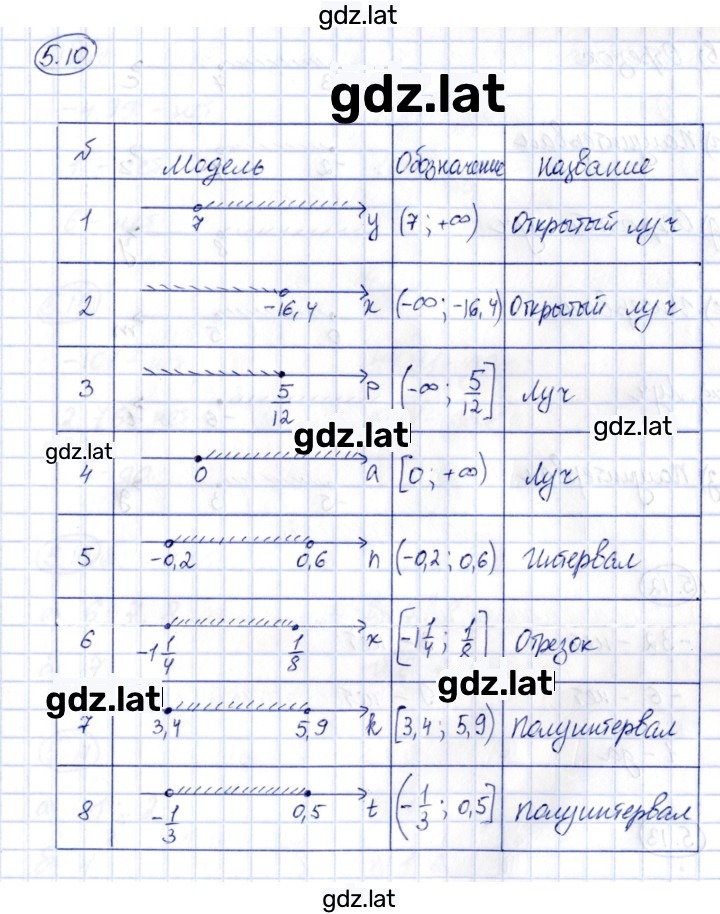 gdz.lat
5.10
gdz.lat
№ Модель Обозначение Название
1 7 y (7; +∞) Открытый луч
2 -16,4 x (-∞; -16,4) Открытый луч
3 5/12 p (-∞; 5/12] Луч
gdz.lat gdz.lat
gdz.lat
4 0 a [0; +∞) Луч
5 -0,2 0,6 n (-0,2; 0,6) Интервал
6 -1 1/4 1/8 x [-1 1/4; 1/8] Отрезок
gdz.lat gdz.lat
7 3,4 5,9 k [3,4; 5,9) Полуинтервал
8 -1/3 0,5 t (-1/3; 0,5] Полуинтервал
gdz.lat